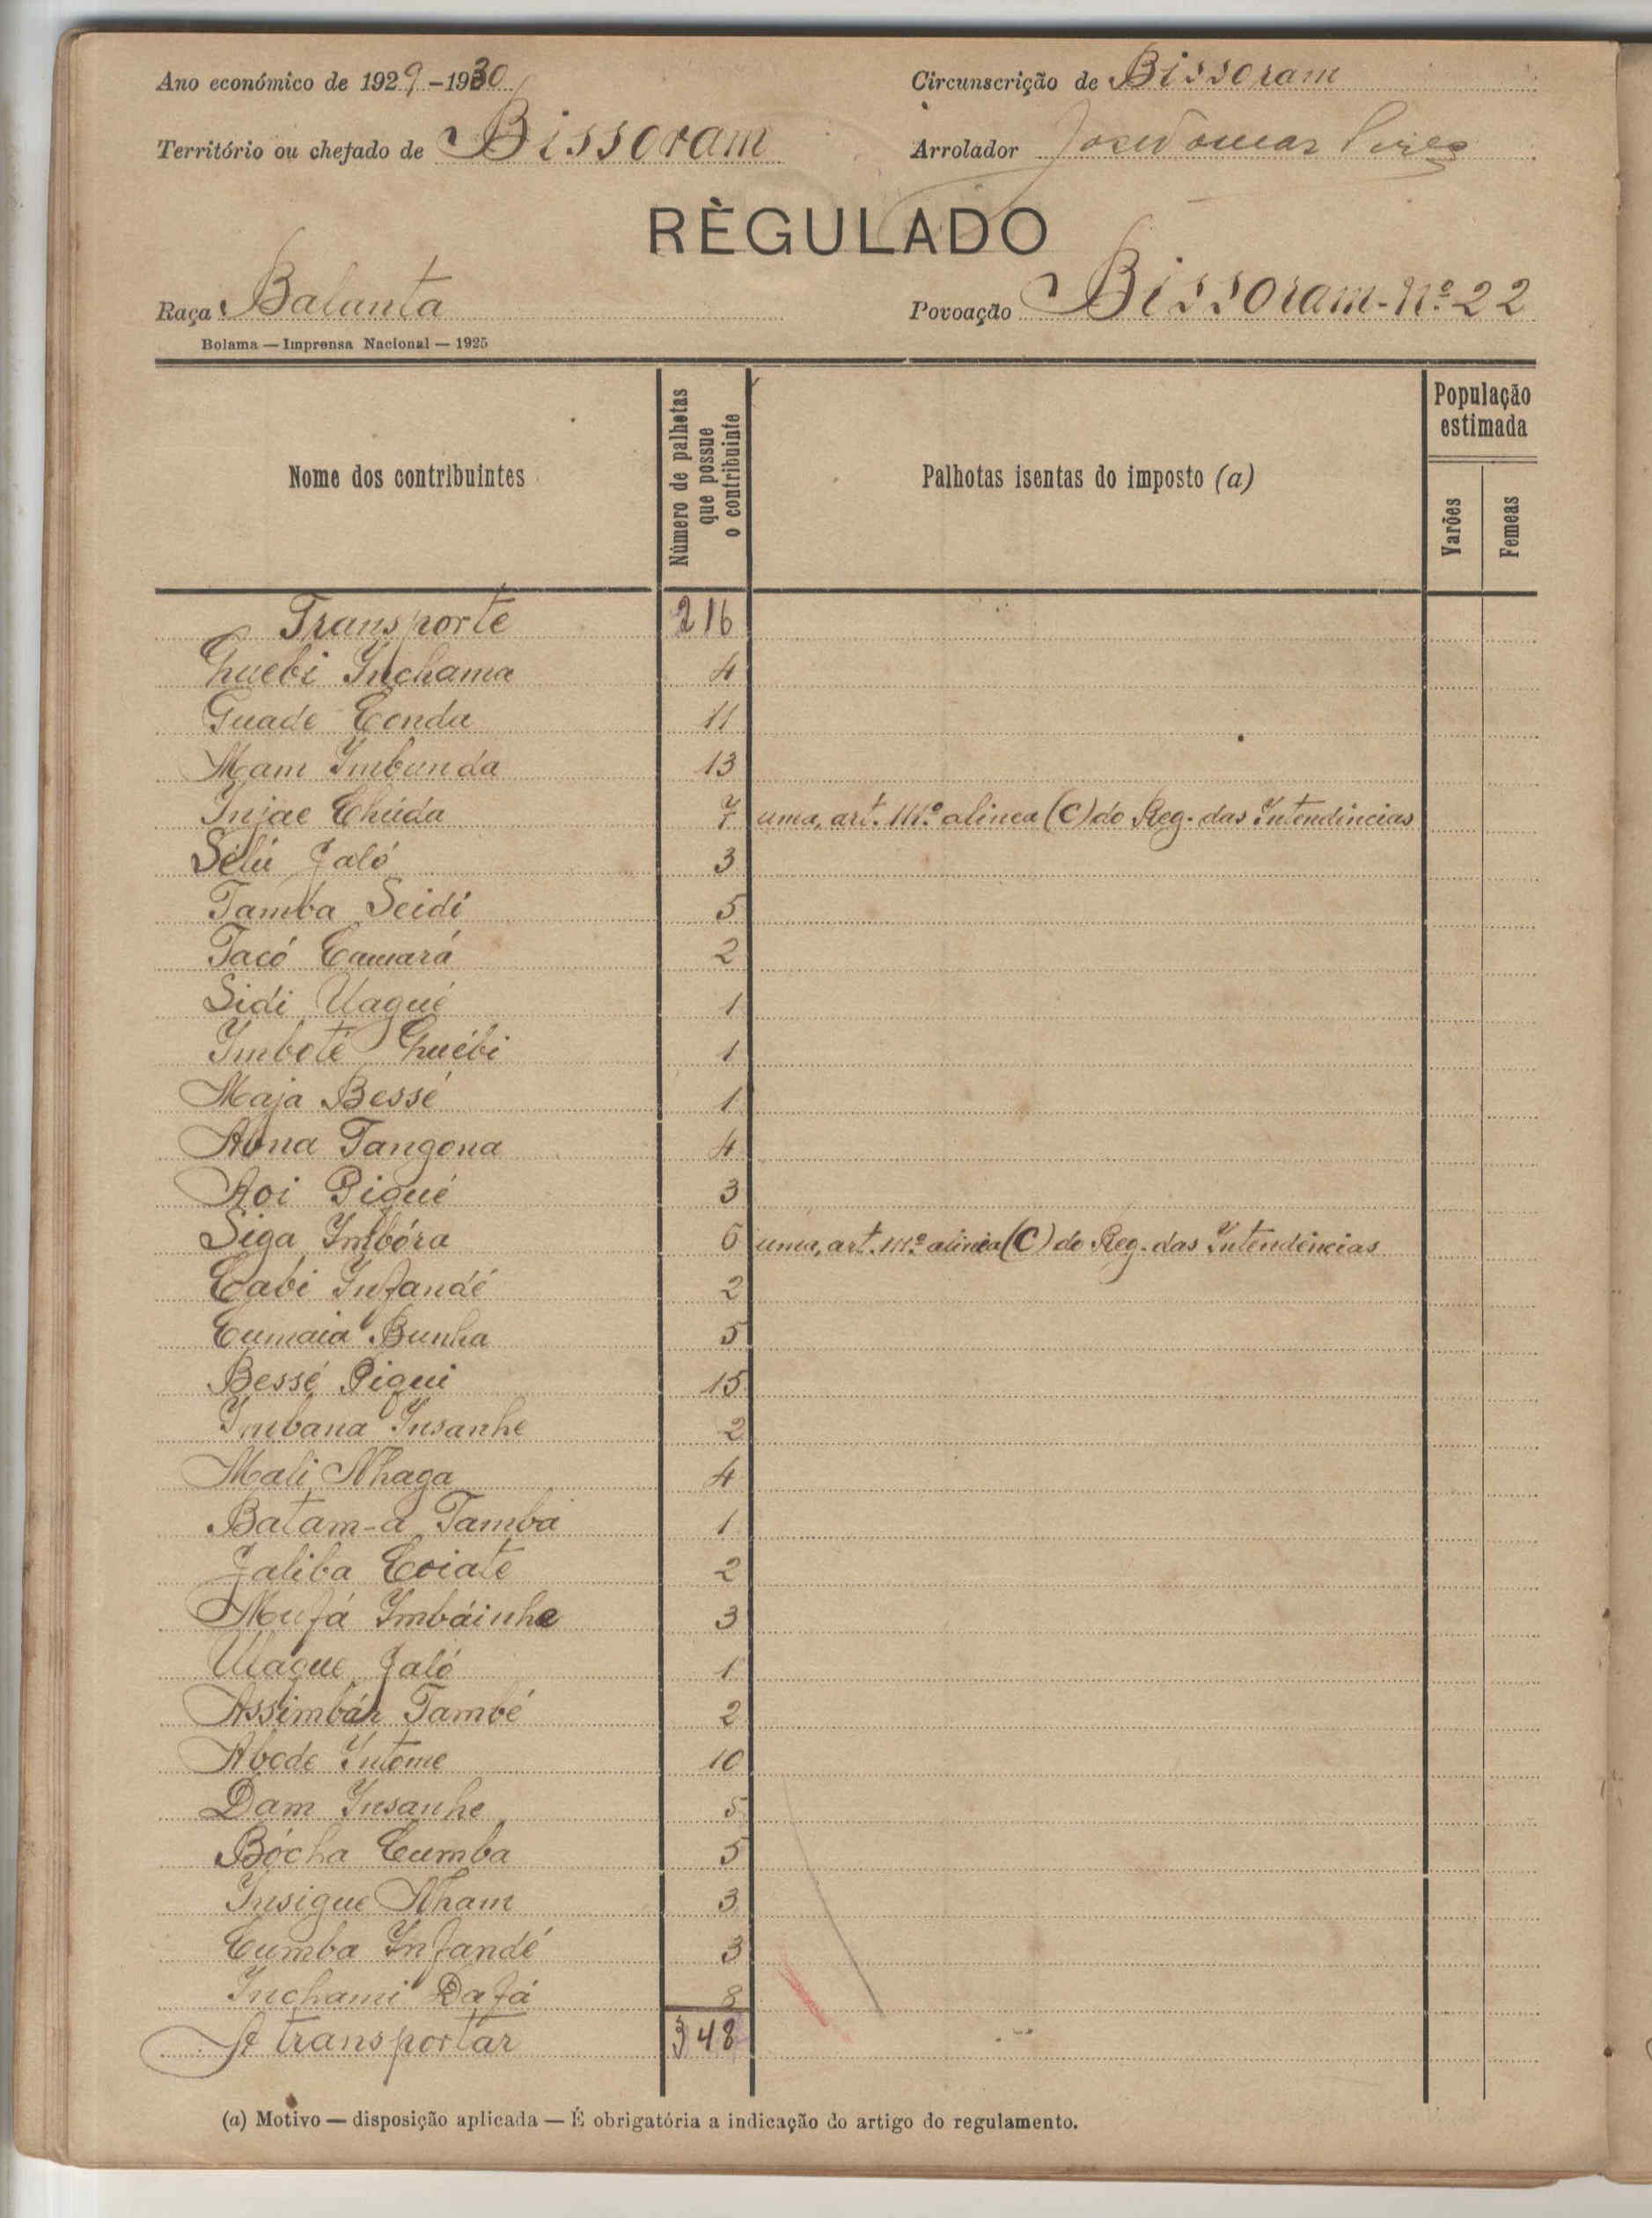 Ano económico de 1929-1930
Circunscrição de Bissoram
Território ou chefado de Bissoram
Arrolador José Pires
RÈGULADO
Raça Balanta
Povoação Bissoram-Nº 22
Bolama — Imprensa Nacional — 1925
Nome dos contribuintes
Número de palhotas que possue o contribuinte
Palhotas isentas do imposto (a)
População estimada
Varões
Femeas
Transporte 216
Ghuebi Inchama 4
Guade Conda 11
Mam Imbunda 13
Injae Chúda 7 uma, art. 111º alinea (C) do Reg. das Intendincias
Sélú Jaló 3
Tamba Seidi 5
Tacó Camará 2
Sidi Uagué 1
Imboté Ghuébi 1
Maja Bessé 1
Abna Tangona 4
Aoi Pigué 3
Siga Imbóra 6 uma, art. 111º alinea (C) do Reg. das Intendências
Cabi Infandé 2
Cumaia Bunha 5
Bessé Piqui 15
Imbana Insanhe 2
Mali Nhaga 4
Batam-a Tamba 1
Jaliba Coiate 2
Mufá Imbáinha 3
Uague Jaló 1
Assimbár També 2
Abode Intome 10
Dam Insanhe 5
Bócha Cumba 5
Insigue Nham 3
Cumba Infandé 3
Inchami Dafá 8
A transportar 348
(a) Motivo — disposição aplicada — É obrigatória a indicação do artigo do regulamento.